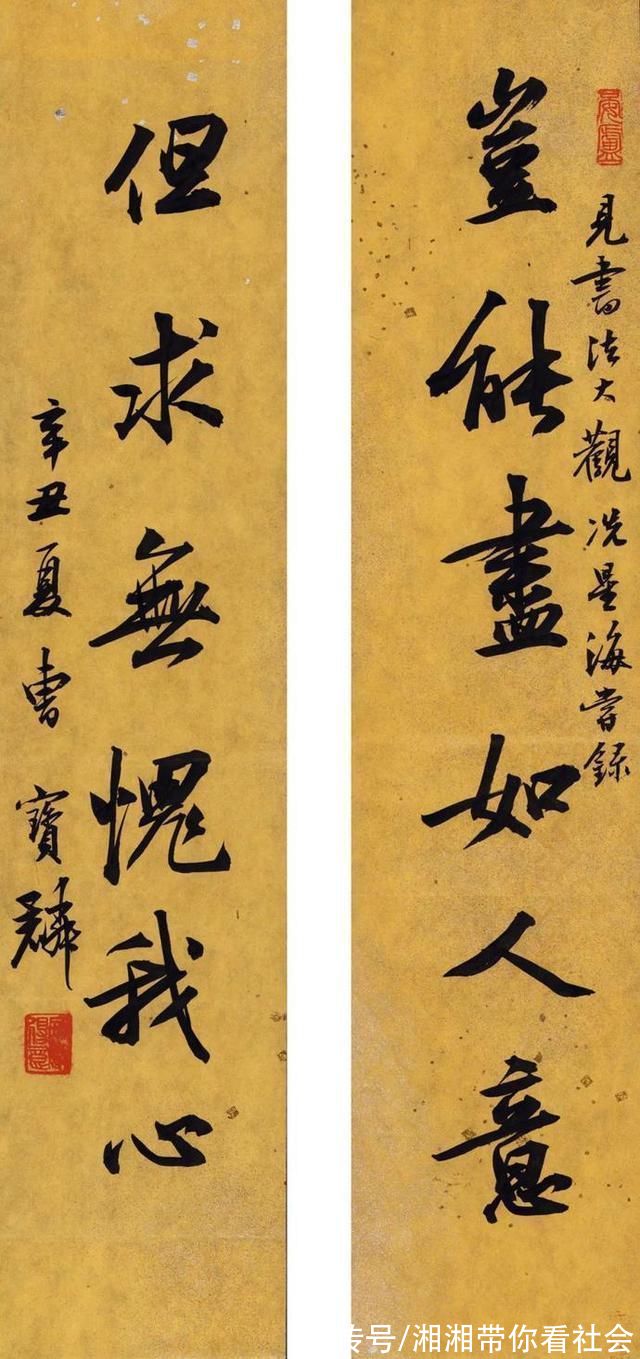 豈能盡如人意
見書法大觀冼星海嘗録
但求無愧我心
辛丑夏曹寶麟
传号/湘湘带你看社会